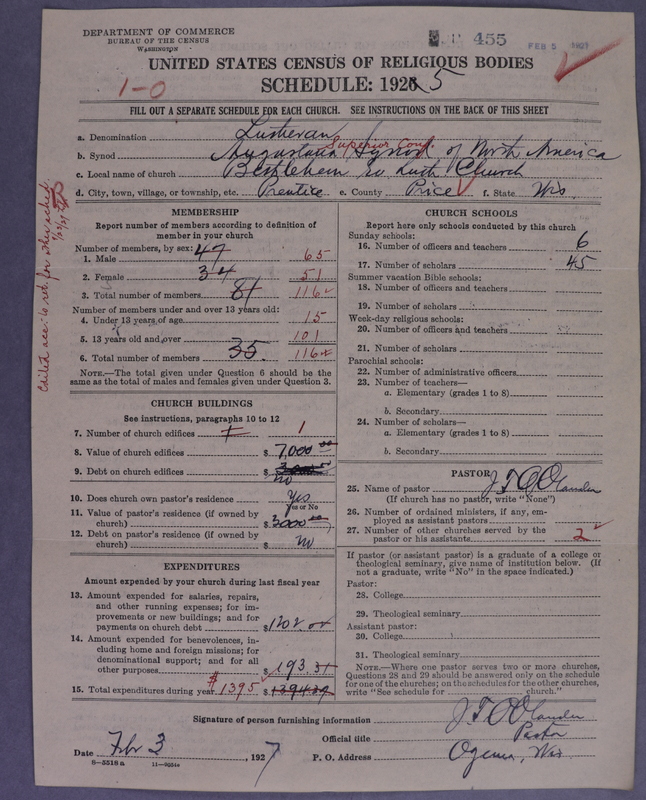 DEPARTMENT OF COMMERCE
BUREAU OF THE CENSUS
WASHINGTON
455
FEB 5 1927
UNITED STATES CENSUS OF RELIGIOUS BODIES
1-0
SCHEDULE: 1926 5
FILL OUT A SEPARATE SCHEDULE FOR EACH CHURCH. SEE INSTRUCTIONS ON THE BACK OF THIS SHEET
a. Denomination Lutheran
Superior Conf.
b. Synod Augustana Synod of North America
c. Local name of church Bethlehem Luth Church
d. City, town, village, or township, etc. Prentice e. County Price f. State Wis
MEMBERSHIP
Report number of members according to definition of
member in your church
Number of members, by sex:
1. Male 47 65
2. Female 34 51
3. Total number of members 81 116
Number of members under and over 13 years old:
4. Under 13 years of age 15
5. 13 years old and over 101
6. Total number of members 35 116
NOTE.—The total given under Question 6 should be
same as the total of males and females given under Question 3.
CHURCH BUILDINGS
See instructions, paragraphs 10 to 12
7. Number of church edifices 1
8. Value of church edifices $ 7,000 00
9. Debt on church edifices $ no
10. Does church own pastor's residence Yes
Yes or No
11. Value of pastor's residence (if owned by
church) $ 3000 00
12. Debt on pastor's residence (if owned by
church) $ no
EXPENDITURES
Amount expended by your church during last fiscal year
13. Amount expended for salaries, repairs,
and other running expenses; for im-
provements or new buildings; and for
payments on church debt $
14. Amount expended for benevolences, in-
cluding home and foreign missions; for
denominational support; and for all
other purposes $ 193 31
15. Total expenditures during year $1395 $
CHURCH SCHOOLS
Report here only schools conducted by this church
Sunday schools:
16. Number of officers and teachers 6
17. Number of scholars 45
Summer vacation Bible schools:
18. Number of officers and teachers
19. Number of scholars
Week-day religious schools:
20. Number of officers and teachers
21. Number of scholars
Parochial schools:
22. Number of administrative officers
23. Number of teachers—
a. Elementary (grades 1 to 8)
b. Secondary
24. Number of scholars—
a. Elementary (grades 1 to 8)
b. Secondary
PASTOR
25. Name of pastor
(If church has no pastor, write "None")
26. Number of ordained ministers, if any, em-
ployed as assistant pastors
27. Number of other churches served by the
pastor or his assistants 2
If pastor (or assistant pastor) is a graduate of a college or
theological seminary, give name of institution below. (If
not a graduate, write "No" in the space indicated.)
Pastor:
28. College
29. Theological seminary
Assistant pastor:
30. College
31. Theological seminary
NOTE.—Where one pastor serves two or more churches,
Questions 28 and 29 should be answered only on the schedule
for one of the churches; on the schedules for the other churches,
write "See schedule for church."
Signature of person furnishing information
Official title Pastor
Date Feb 3, 1927 P. O. Address Ogema, Wis
8-5518 a